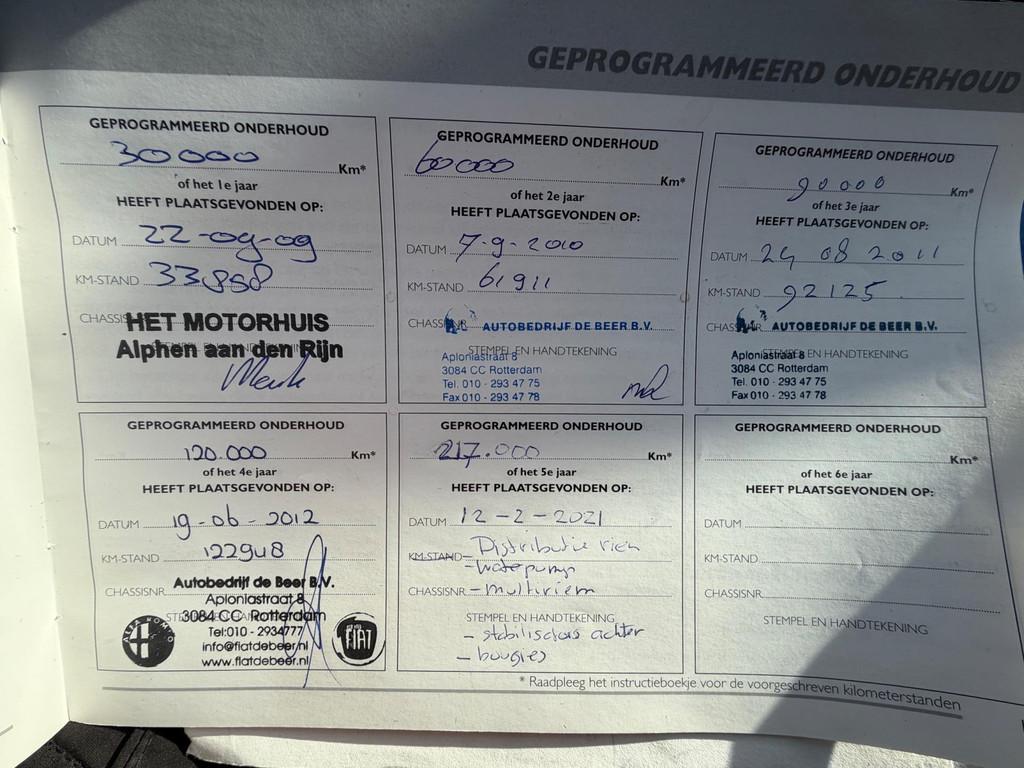 GEPROGRAMMEERD ONDERHOUD
GEPROGRAMMEERD ONDERHOUD
30000 Km*
of het 1e jaar
HEEFT PLAATSGEVONDEN OP:
DATUM 22-09-09
KM-STAND 33898
CHASSISNR.
HET MOTORHUIS
Alphen aan den Rijn
GEPROGRAMMEERD ONDERHOUD
60000 Km*
of het 2e jaar
HEEFT PLAATSGEVONDEN OP:
DATUM 7-9-2010
KM-STAND 61911
CHASSISNR. AUTOBEDRIJF DE BEER B.V.
STEMPEL EN HANDTEKENING
Aploniastraat 8
3084 CC Rotterdam
Tel. 010 - 293 47 75
Fax 010 - 293 47 78
GEPROGRAMMEERD ONDERHOUD
90000 Km*
of het 3e jaar
HEEFT PLAATSGEVONDEN OP:
DATUM 24 08 2011
KM-STAND 92125
CHASSISNR. AUTOBEDRIJF DE BEER B.V.
STEMPEL EN HANDTEKENING
Aploniastraat 8
3084 CC Rotterdam
Tel. 010 - 293 47 75
Fax 010 - 293 47 78
GEPROGRAMMEERD ONDERHOUD
120.000 Km*
of het 4e jaar
HEEFT PLAATSGEVONDEN OP:
DATUM 19-06-2012
KM-STAND 122948
CHASSISNR. Autobedrijf de Beer B.V.
Aploniastraat 8
3084 CC Rotterdam
Tel:010 - 2934777
info@fiatdebeer.nl
www.fiatdebeer.nl
ALFA ROMEO
FIAT
GEPROGRAMMEERD ONDERHOUD
217.000 Km*
of het 5e jaar
HEEFT PLAATSGEVONDEN OP:
DATUM 12-2-2021
KM-STAND - Distributie riem
- waterpomp
CHASSISNR. - multiriem
STEMPEL EN HANDTEKENING
- stabilisators achter
- bougies
GEPROGRAMMEERD ONDERHOUD
Km*
of het 6e jaar
HEEFT PLAATSGEVONDEN OP:
DATUM
KM-STAND
CHASSISNR.
STEMPEL EN HANDTEKENING
* Raadpleeg het instructieboekje voor de voorgeschreven kilometerstanden